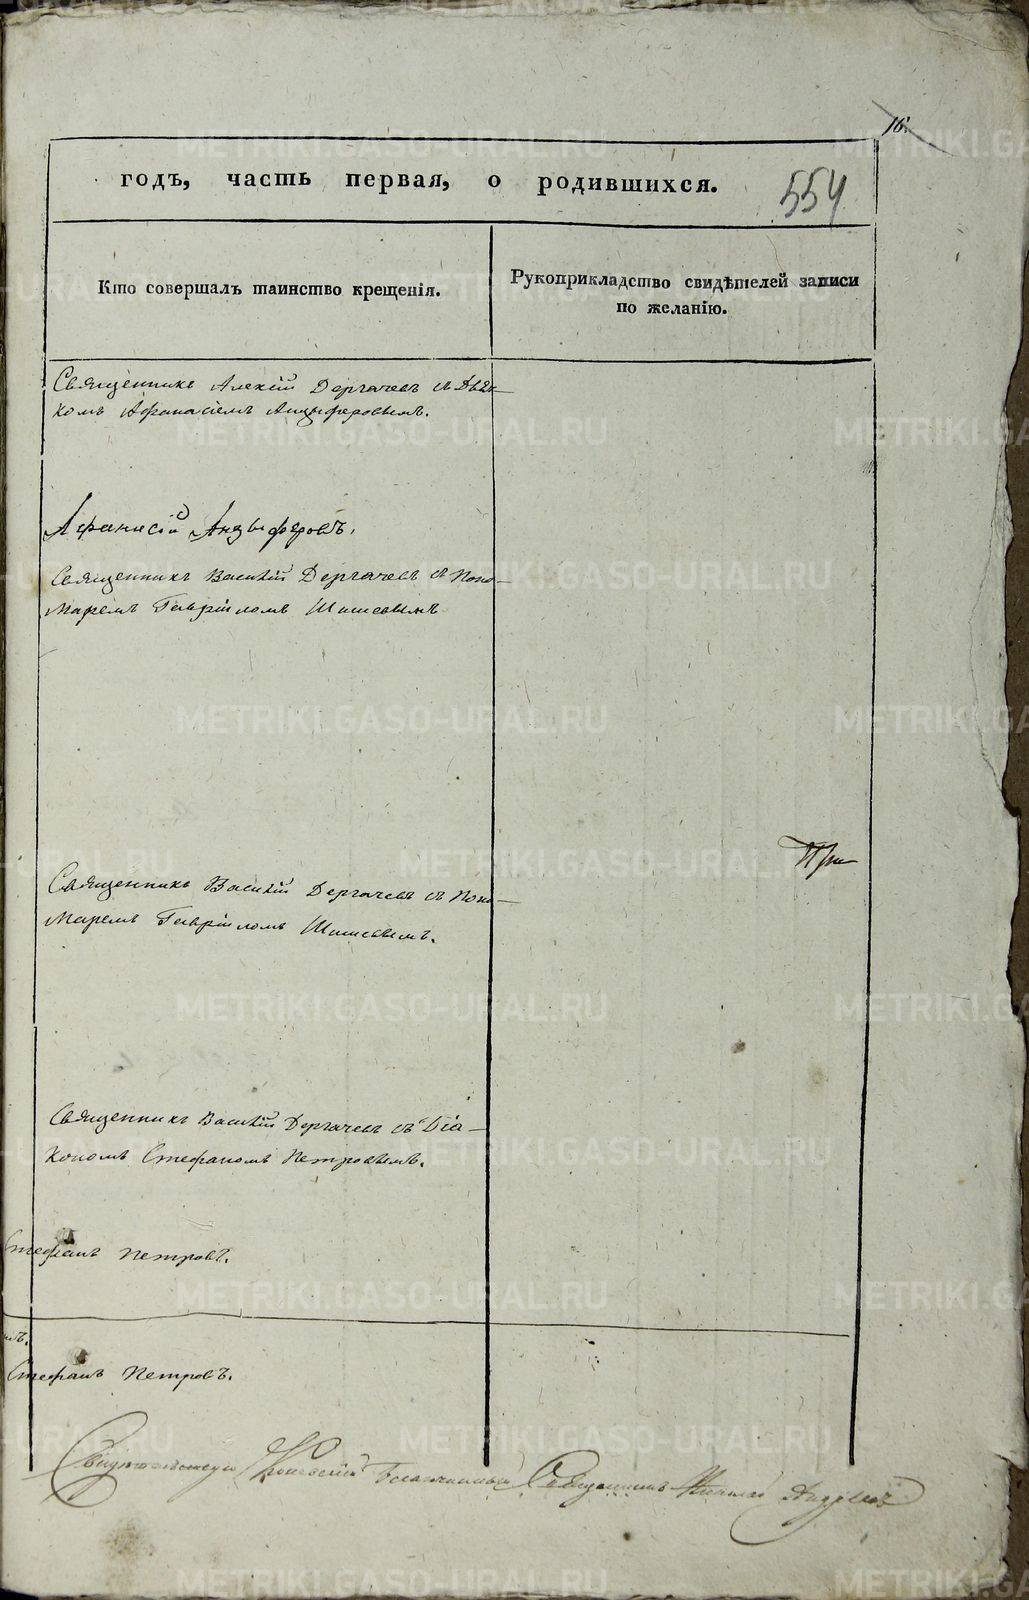 16.
годъ, часть первая, о родившихся. 554
Кто совершалъ таинство крещенія.
Рукоприкладство свидѣтелей записи
по желанію.
Священникъ Алексій Дергачевъ съ Дьяч-
комъ Афанасіемъ Анцыферовымъ.
Афанасій Анцыферовъ.
Священникъ Василій Дергачевъ съ Поно-
маремъ Гаврііломъ
Священникъ Василій Дергачевъ съ Поно-
маремъ Гаврііломъ
Священникъ Василій Дергачевъ съ Діа-
кономъ Стефаномъ Петровымъ.
Стефанъ Петровъ.
Стефанъ Петровъ.
Благочинный Священникъ
METRIKI.GASO-URAL.RU